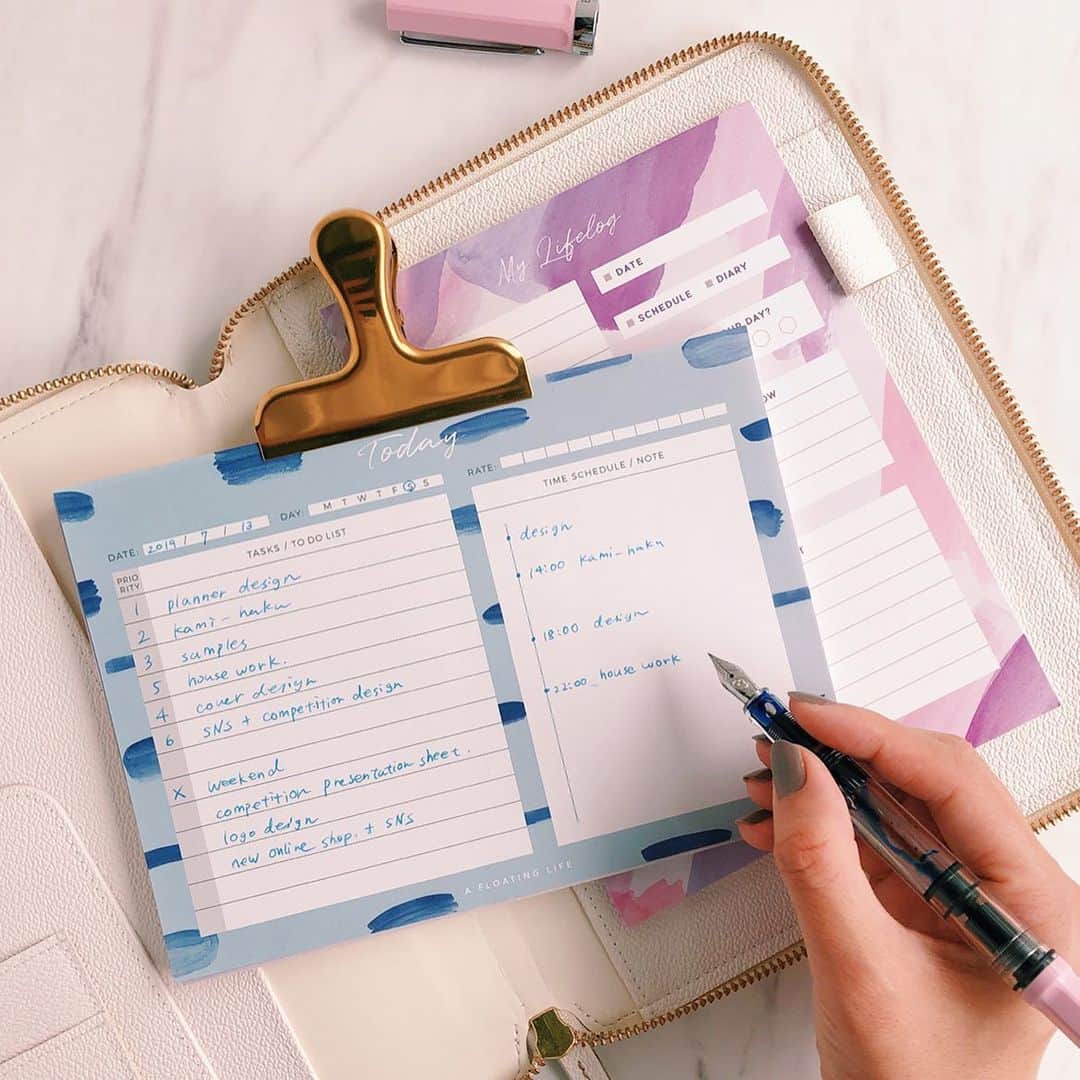 My Lifelog
DATE
SCHEDULE DIARY
DAY?
Today
DATE: 2019 / 7 / 13 DAY: M T W T F S S
RATE:
TASKS / TO DO LIST
PRIO
RITY
1 planner design
2 kami-haku
3 samples
5 house work.
4 cover design
6 SNS + competition design
x weekend
competition presentation sheet.
logo design
new online shop. + SNS
TIME SCHEDULE / NOTE
design
14:00 kami-haku
18:00 design
22:00_house work
A FLOATING LIFE